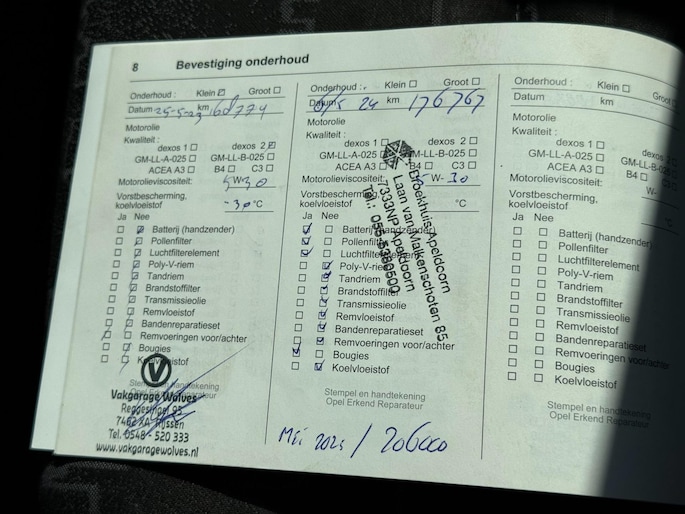 8 Bevestiging onderhoud
Onderhoud : Klein Groot
Datum 25-5-23 km 160774
Motorolie
Kwaliteit :
dexos 1 dexos 2
GM-LL-A-025 GM-LL-B-025
ACEA A3 B4 C3
Motorolieviscositeit: 5 W- 30
Vorstbescherming,
koelvloeistof -30 °C
Ja Nee
Batterij (handzender)
Pollenfilter
Luchtfilterelement
Poly-V-riem
Tandriem
Brandstoffilter
Transmissieolie
Remvloeistof
Bandenreparatieset
Remvoeringen voor/achter
Bougies
Koelvloeistof
Stempel en handtekening
Opel Erkend Reparateur
Vakgarage Wolves
Reggesingel 95
7462 XA Rijssen
Tel. 0548 - 520 333
www.vakgaragewolves.nl
Onderhoud : Klein Groot
Datum 24 km 176767
Motorolie
Kwaliteit :
dexos 1 dexos 2
GM-LL-A-025 GM-LL-B-025
ACEA A3 B4 C3
Motorolieviscositeit: 5 W- 30
Vorstbescherming,
koelvloeistof °C
Ja Nee
Batterij (handzender)
Pollenfilter
Luchtfilterelement
Poly-V-riem
Tandriem
Brandstoffilter
Transmissieolie
Remvloeistof
Bandenreparatieset
Remvoeringen voor/achter
Bougies
Koelvloeistof
Broekhuis Apeldoorn
Laan van Malkenschoten 85
7333NP Apeldoorn
Stempel en handtekening
Opel Erkend Reparateur
Mei 2025 / 206000
Onderhoud : Klein Groot
Datum km
Motorolie
Kwaliteit :
dexos 1 dexos 2
GM-LL-A-025 GM-LL-B-025
ACEA A3 B4 C3
Motorolieviscositeit: W-
Vorstbescherming,
koelvloeistof °C
Ja Nee
Batterij (handzender)
Pollenfilter
Luchtfilterelement
Poly-V-riem
Tandriem
Brandstoffilter
Transmissieolie
Remvloeistof
Bandenreparatieset
Remvoeringen voor/achter
Bougies
Koelvloeistof
Stempel en handtekening
Opel Erkend Reparateur